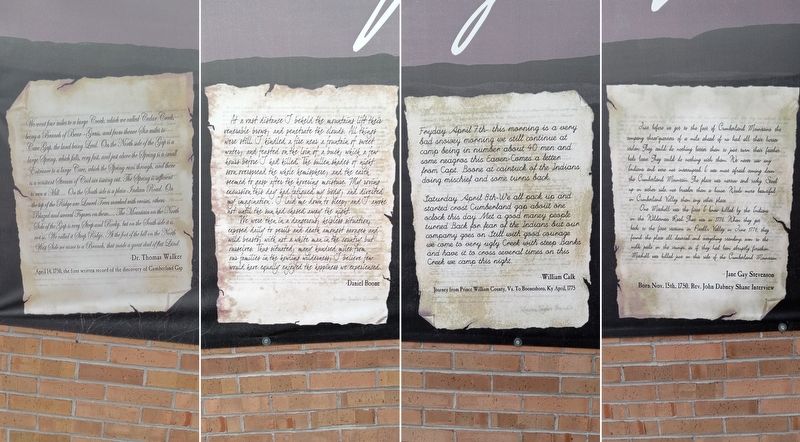 We went four miles to a large Creek, which we called Cedar Creek,
being a Branch of Bear-Grass, and from thence Six miles to
Cave Gap, the land being Levil. On the North side of the Gap is a
large Spring, which falls very fast, and just above the Spring is a small
Entrance to a large Cave, which the Spring runs through, and there
is a constant Stream of Cool air issuing out. The Spring is sufficient
to turn a Mill. On the South side is a plain Indian Road. On
the top of the Ridge are Laurel Trees marked with crosses, others
Blazed and several Figures on them. The Mountain on the North
Side of the Gap is very Steep and Rocky, but on the South side it is
not so. We called it Steep Ridge. At the foot of the hill on the North
West Side we came to a Branch, that made a great deal of flat Land.
-Dr. Thomas Walker
April 14, 1750, the first written record of the discovery of Cumberland Gap
At a vast distance I beheld the mountains lift their
venerable brows, and penetrate the clouds. All things
were still. I kindled a fire near a fountain of sweet
water, and feasted on the loin of a buck, which a few
hours before I had killed. The sullen shades of night
soon overspread the whole hemisphere, and the earth
seemed to gasp after the hovering moisture. My roving
excursion this day had fatigued my body, and diverted
my imagination. I laid me down to sleep, and I awoke
not until the sun had chased away the night.
We were then in a dangerous, helpless situation,
exposed daily to perils and death amongst savages and
wild beasts, not a white man in the country but
ourselves. Thus situated, many hundred miles from
our families in the howling wilderness, I believe few
would have equally enjoyed the happiness we experienced.
-Daniel Boone
Fryday April 7th- this morning is a very
bad snowey morning we still continue at
camp being in number about 40 men and
some neagros this eaven-Comes a letter
from Capt. Boone at caintuck of the Indians
doing mischief and some turns back.
Saturday April 8th-We all pack up and
started crost Cumberland gap about one
oclock this day Met a good maney people
turned Back for fear of the Indians but our
company goes on Still with good courage
we come to very ugly Creek with steep Banks
and have it to cross several times on this
Creek we camp this night.
-William Calk
Journey from Prince William County, Va. To Boonesboro, Ky April, 1775
Just before we got to the foot of Cumberland Mountains the
company three-quarters of a mile ahead of us had all their horses
stolen. They could do nothing better than to just
turn back. They could do nothing with them. We never saw any
Indians and were not interrupted. I was most afraid coming down
the Cumberland Mountain. The place was narrow and rocky. Stood
up on either side, not broader than a house. Roads more beautiful
in Cumberland Valley than any other place.
-Jane Gay Stevenson
Born Nov. 15th, 1750. Rev. John Dabney Shane Interview